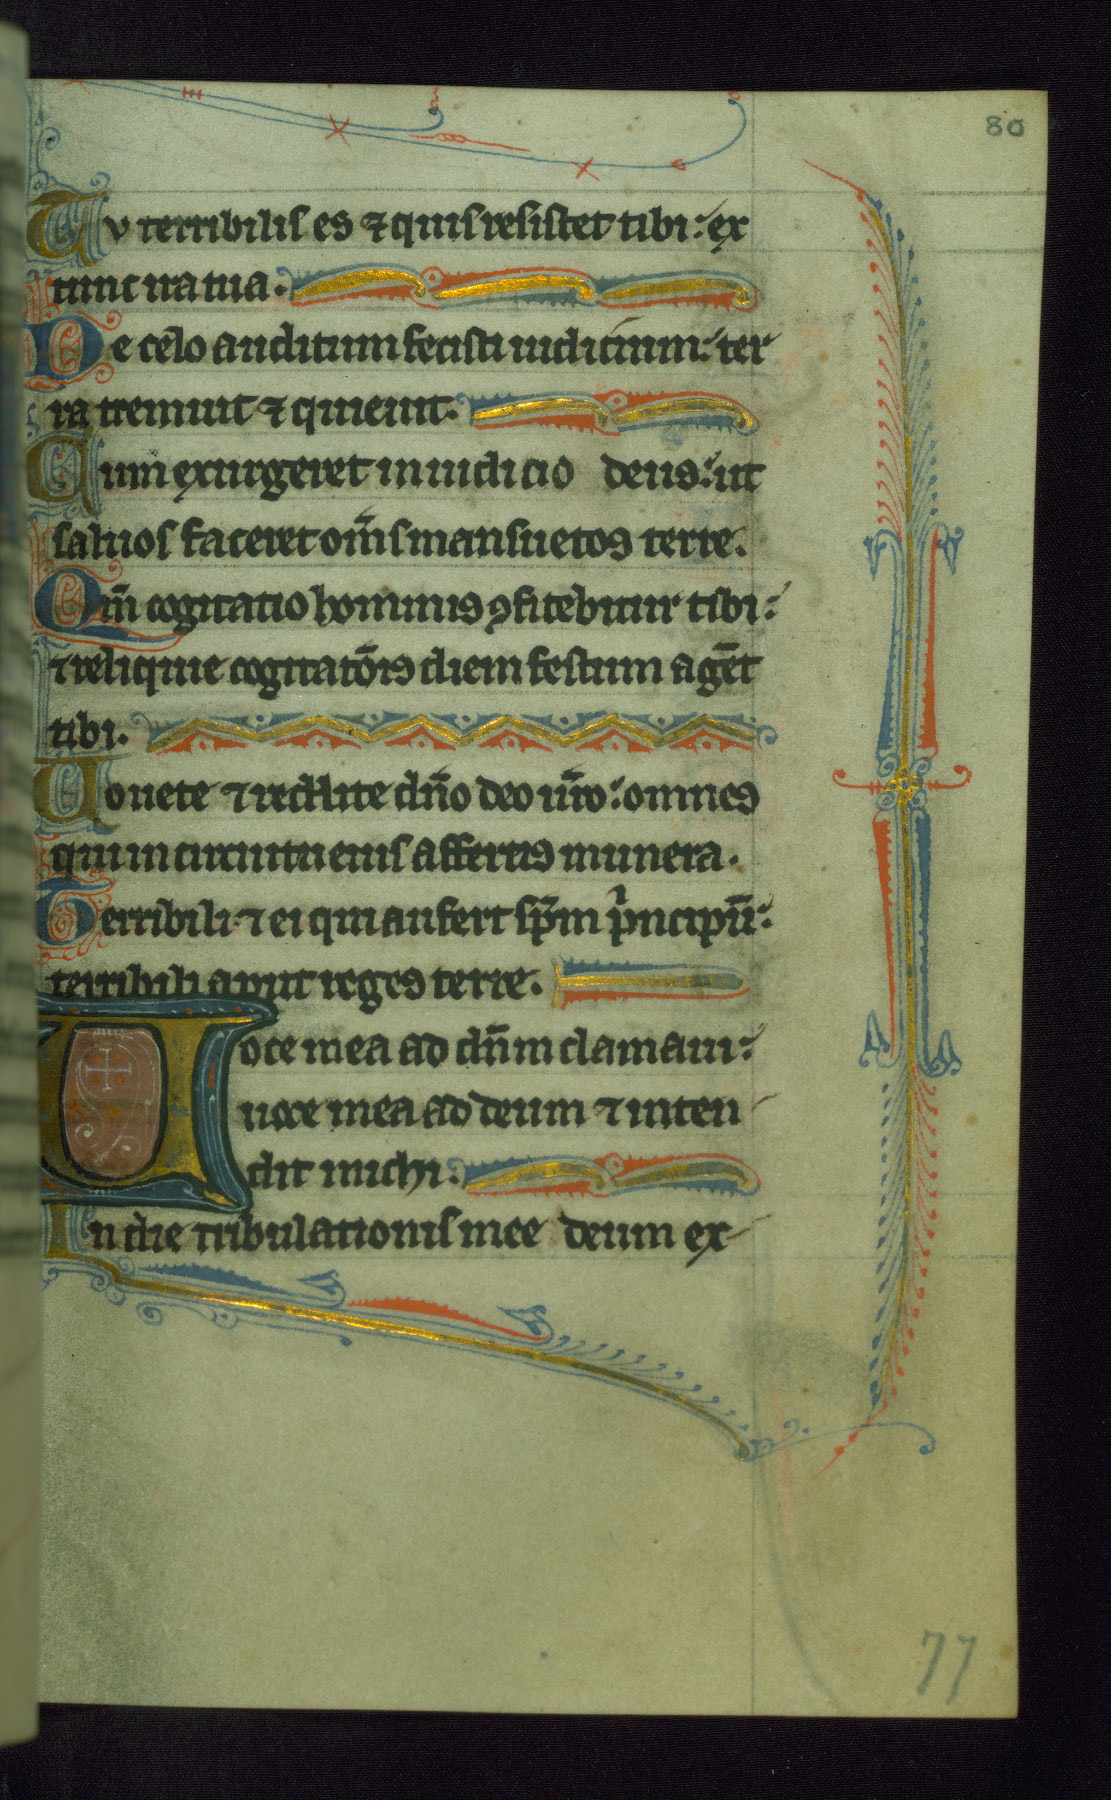 80
Tu terribilis es ⁊ quis resistet tibi: ex
tunc ira tua.
De celo auditum fecisti iudicium: ter
ra tremuit ⁊ quieuit.
Cum exurgeret in iudicio deus: ut
saluos faceret om̄s mansuetos terre.
Qm̄ cogitatio hominis ꝯfitebitur tibi:
⁊ reliquie cogitatōis diem festum agēt
tibi.
Uouete ⁊ reddite dn̄o deo ur̄o: omnes
qui in circuitu eius affertis munera.
Terribili ⁊ ei qui aufert sp̄m pͥncipū:
terribili aput reges terre.
Uoce mea ad dn̄m clamaui:
uoce mea ad deum ⁊ inten
dit michi.
In die tribulationis mee deum ex
77